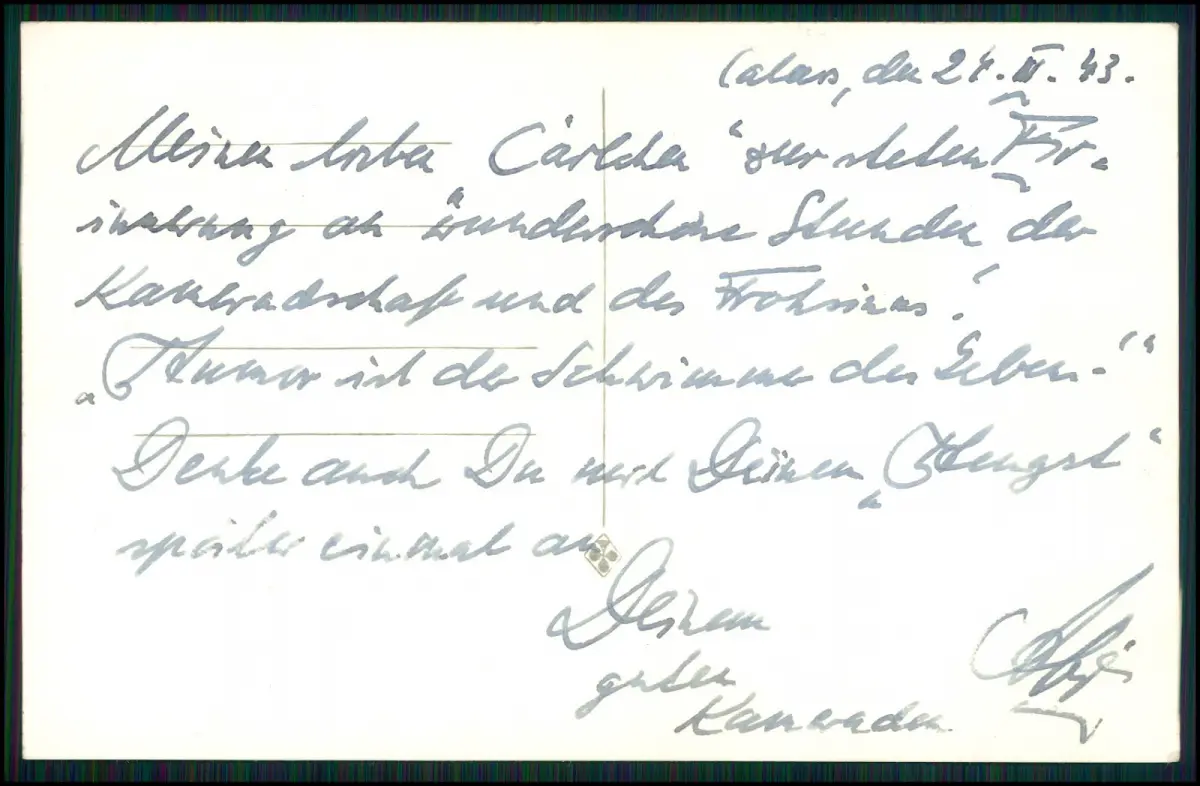 Calais, den 24. III. 43.
Meinen lieben Carlchen "zur steten Er-
innerung an "wunderschöne Stunden der
Kameradschaft und des Frohsinns!
„Humor ist der Schwimmer des Lebens"
Denke auch Du mit Deinem „Hengst"
später einmal an
Deinen
guten
Kameraden